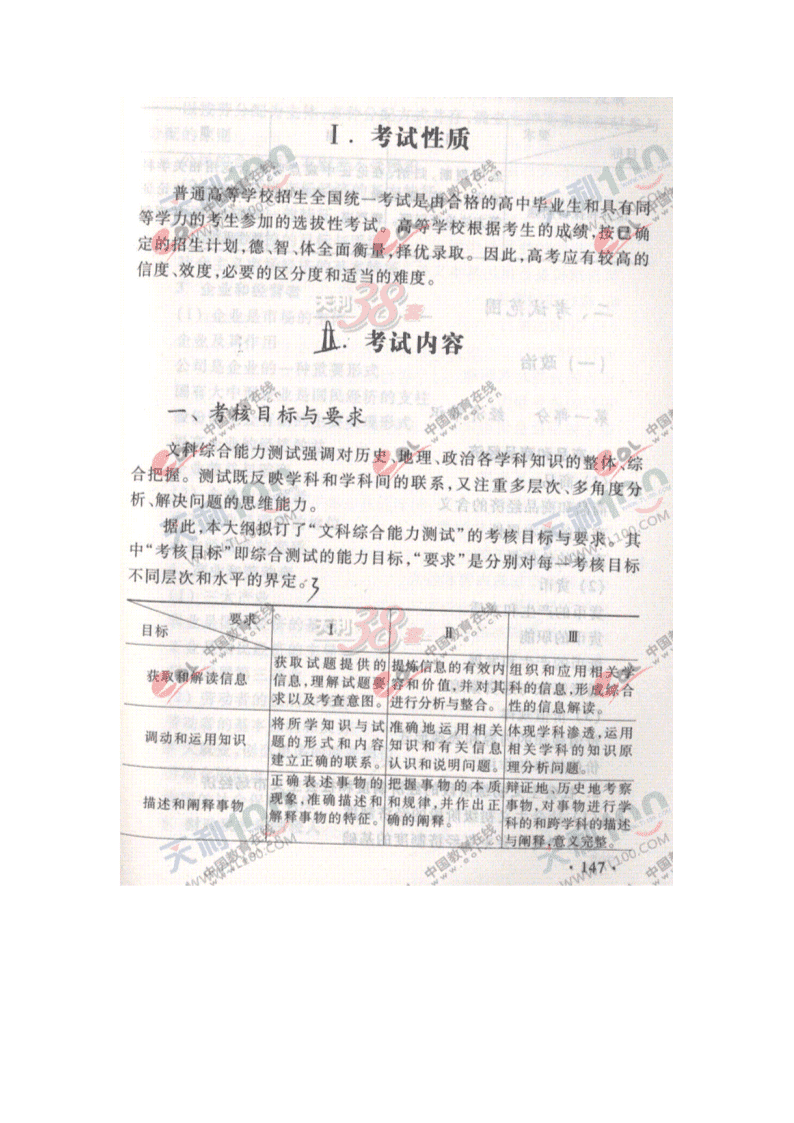 Ⅰ. 考试性质
普通高等学校招生全国统一考试是由合格的高中毕业生和具有同
等学力的考生参加的选拔性考试。高等学校根据考生的成绩,按已确
定的招生计划,德、智、体全面衡量,择优录取。因此,高考应有较高的
信度、效度,必要的区分度和适当的难度。
Ⅱ. 考试内容
一、考核目标与要求
文科综合能力测试强调对历史、地理、政治各学科知识的整体、综
合把握。测试既反映学科和学科间的联系,又注重多层次、多角度分
析、解决问题的思维能力。
据此,本大纲拟订了“文科综合能力测试”的考核目标与要求。其
中“考核目标”即综合测试的能力目标,“要求”是分别对每一考核目标
不同层次和水平的界定。
要求
目标
Ⅰ
Ⅱ
Ⅲ
获取和解读信息
获取试题提供的
信息,理解试题要
求以及考查意图。
提炼信息的有效内
容和价值,并对其
进行分析与整合。
组织和应用相关学
科的信息,形成综合
性的信息解读。
调动和运用知识
将所学知识与试
题的形式和内容
建立正确的联系。
准确地运用相关
知识和有关信息
认识和说明问题。
体现学科渗透,运用
相关学科的知识原
理分析问题。
描述和阐释事物
正确表述事物的
现象,准确描述和
解释事物的特征。
把握事物的本质
和规律,并作出正
确的阐释。
辩证地、历史地考察
事物,对事物进行学
科的和跨学科的描述
与阐释,意义完整。
· 147 ·
天利100
WWW.TL100.COM
中国教育在线
www.eol.cn
eol
天利38套